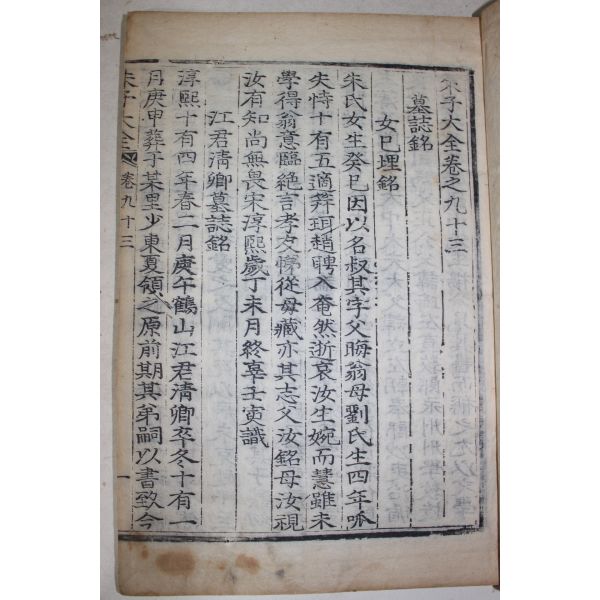 朱子大全卷之九十三
墓誌銘
女巳埋銘
朱氏女生癸巳因以名叔其字父晦翁母劉氏生四年呱
失恃十有五適笄珥趙聘入奄然逝哀汝生婉而慧雖未
學得翁意臨絶言孝友悌從母藏亦其志父汝銘母汝視
汝有知尚無畏宋淳熙歲丁未月終辜壬寅識
江君清卿墓誌銘
淳熙十有四年春二月庚午鶴山江君清卿卒冬十有一
月庚申葬于某里少東夏領之原前期其弟嗣以書致今
朱子大全 卷九十三 一